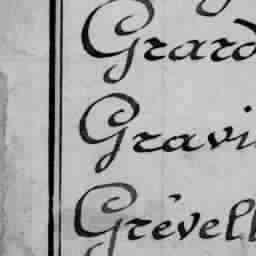 Grard
Gravi
Grével